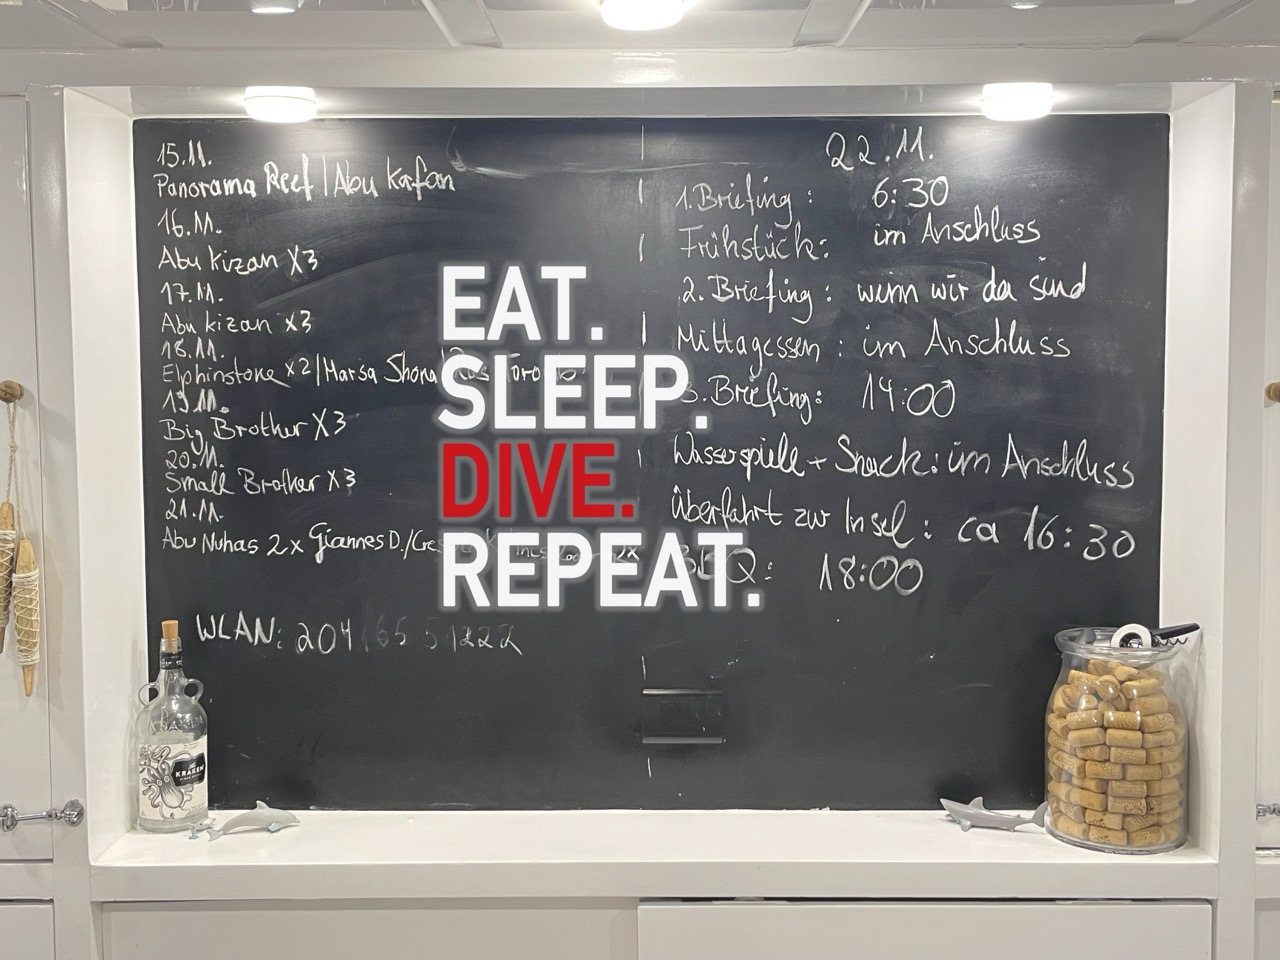 15.11.
Panorama Reef / Abu Kafan
16.11.
Abu Kizan X3
17.11.
Abu Kizan X3
18.11.
Elphinstone x2 / Marsa Shona
19.11.
Big Brother X3
20.11.
Small Brother X3
21.11.
Abu Nuhas 2x Giannes D. /
WLAN: 204165 51222
EAT.
SLEEP.
DIVE.
REPEAT.
22.11.
1. Briefing: 6:30
Frühstück: im Anschluss
2. Briefing: wenn wir da sind
Mittagessen: im Anschluss
3. Briefing: 14:00
Wasserspiele + Snack: im Anschluss
Überfahrt zur Insel: ca 16:30
18:00
KRAKEN